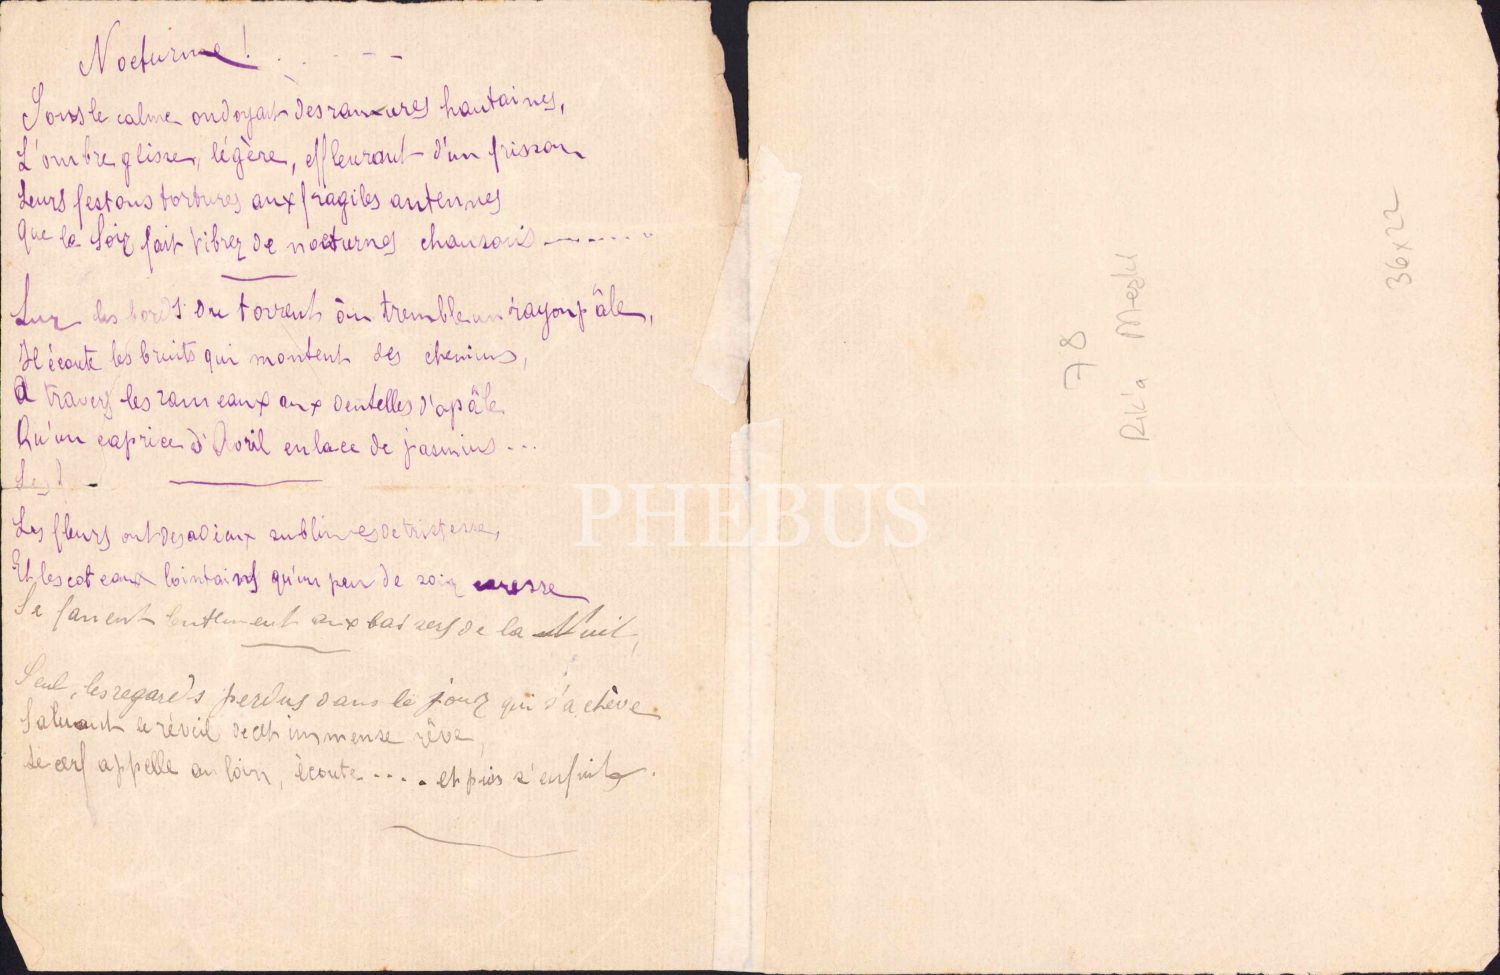 Nocturne ! . . . - -
Sous le calme ondoyant des ramures hautaines,
L'ombre glisse, légère, effleurant d'un frisson
Leurs festons torturés aux fragiles antennes
Que le Soir fait vibrer de nocturnes chansons -------
Sur les bords du torrent où tremble un rayon pâle,
Il écoute les bruits qui montent des chemins,
A travers les rameaux aux dentelles d'opâle
Qu'un caprice d'Avril enlace de jasmins ...
Les
Les fleurs ont des adieux sublimes de tristesse,
Et les coteaux lointains qu'un peu de soir caresse
Se fanent lentement aux baisers de la Nuit,
Seul, les regards perdus dans le jour qui s'achève
Saluant le réveil de cet immense rêve,
Le cerf appelle au loin, écoute .... et puis s'enfuit.
78
Rik'a
36x22
PHEBUS